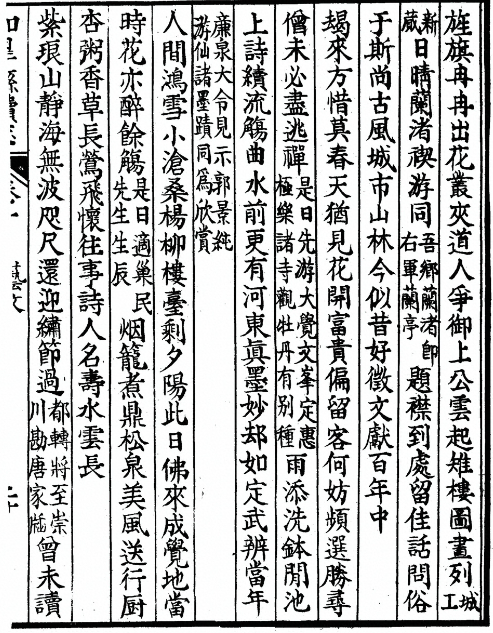 旌旗冉冉出花叢夾道人爭御上公雲起雉樓圖畫列城工
新歲日晴蘭渚禊游同吾鄉蘭渚即右軍蘭亭題襟到處留佳話問俗
于斯尚古風城市山林今似昔好徵文獻百年中
朅來方惜莫春天猶見花開富貴偏留客何妨頻選勝尋
僧未必盡逃禪是日先游大覺文峯定惠極樂諸寺觀牡丹有别種雨添洗鉢閒池
上詩續流觴曲水前更有河東眞墨妙却如定武辨當年
廉泉大令見示郭景純游仙諸墨蹟同爲欣賞
人間鴻雪小滄桑楊柳樓臺剩夕陽此日佛來成覺地當
時花亦醉餘觴是日適巢民先生生辰烟籠煮鼎松泉美風送行厨
杏粥香草長鶯飛懷往事詩人名壽水雲長
紫琅山靜海無波咫尺還迎繡節過都轉將至崇川勘唐家牐曾未讀
如皋縣續志 卷十 藝文